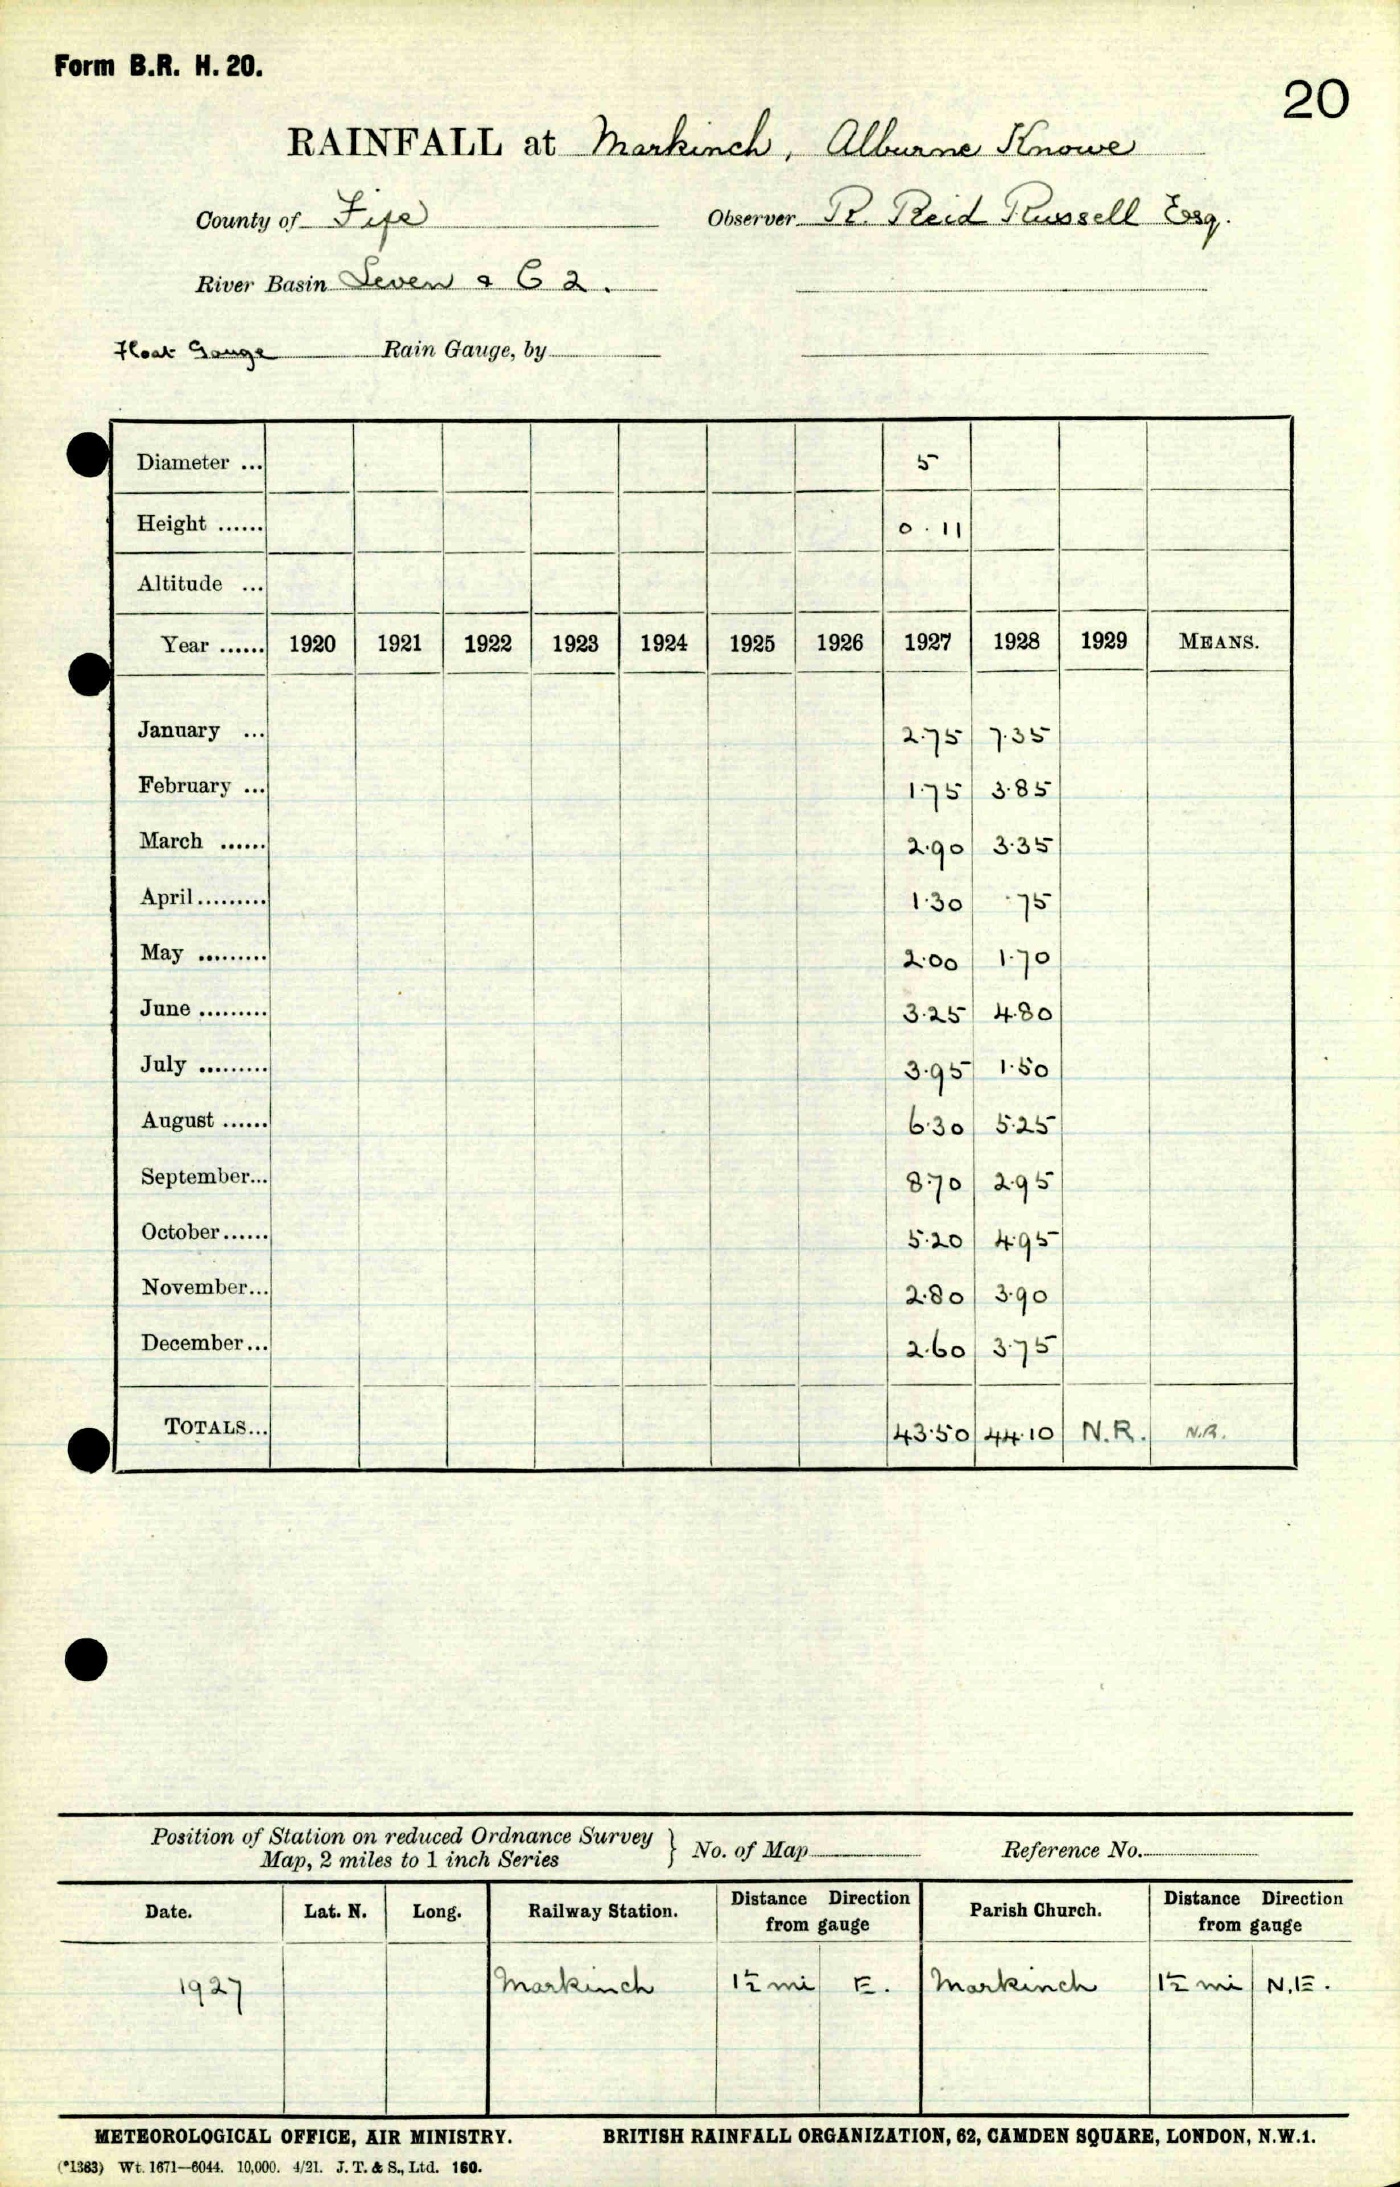 Form B.R. H. 20.
20
RAINFALL at Markinch, Alburne Knowe
County of Fife Observer R. Reid Russell Esq.
River Basin Leven & C 2.
Float Gauge Rain Gauge, by
Diameter ... 5
Height ...... 0.11
Altitude ...
Year ...... 1920 1921 1922 1923 1924 1925 1926 1927 1928 1929 MEANS.
January ... 2.75 7.35
February ... 1.75 3.85
March ...... 2.90 3.35
April ......... 1.30 .75
May ......... 2.00 1.70
June ......... 3.25 4.80
July ......... 3.95 1.50
August ...... 6.30 5.25
September... 8.70 2.95
October...... 5.20 4.95
November... 2.80 3.90
December... 2.60 3.75
TOTALS... 43.50 44.10 N.R. N.R.
Position of Station on reduced Ordnance Survey
Map, 2 miles to 1 inch Series } No. of Map Reference No.
Date. Lat. N. Long. Railway Station. Distance Direction from gauge Parish Church. Distance Direction from gauge
1927 Markinch 1½ mi E. Markinch 1½ mi N.E.
METEOROLOGICAL OFFICE, AIR MINISTRY. BRITISH RAINFALL ORGANIZATION, 62, CAMDEN SQUARE, LONDON, N.W.1.
(*1383) Wt. 1671—6044. 10,000. 4/21. J. T. & S., Ltd. 160.